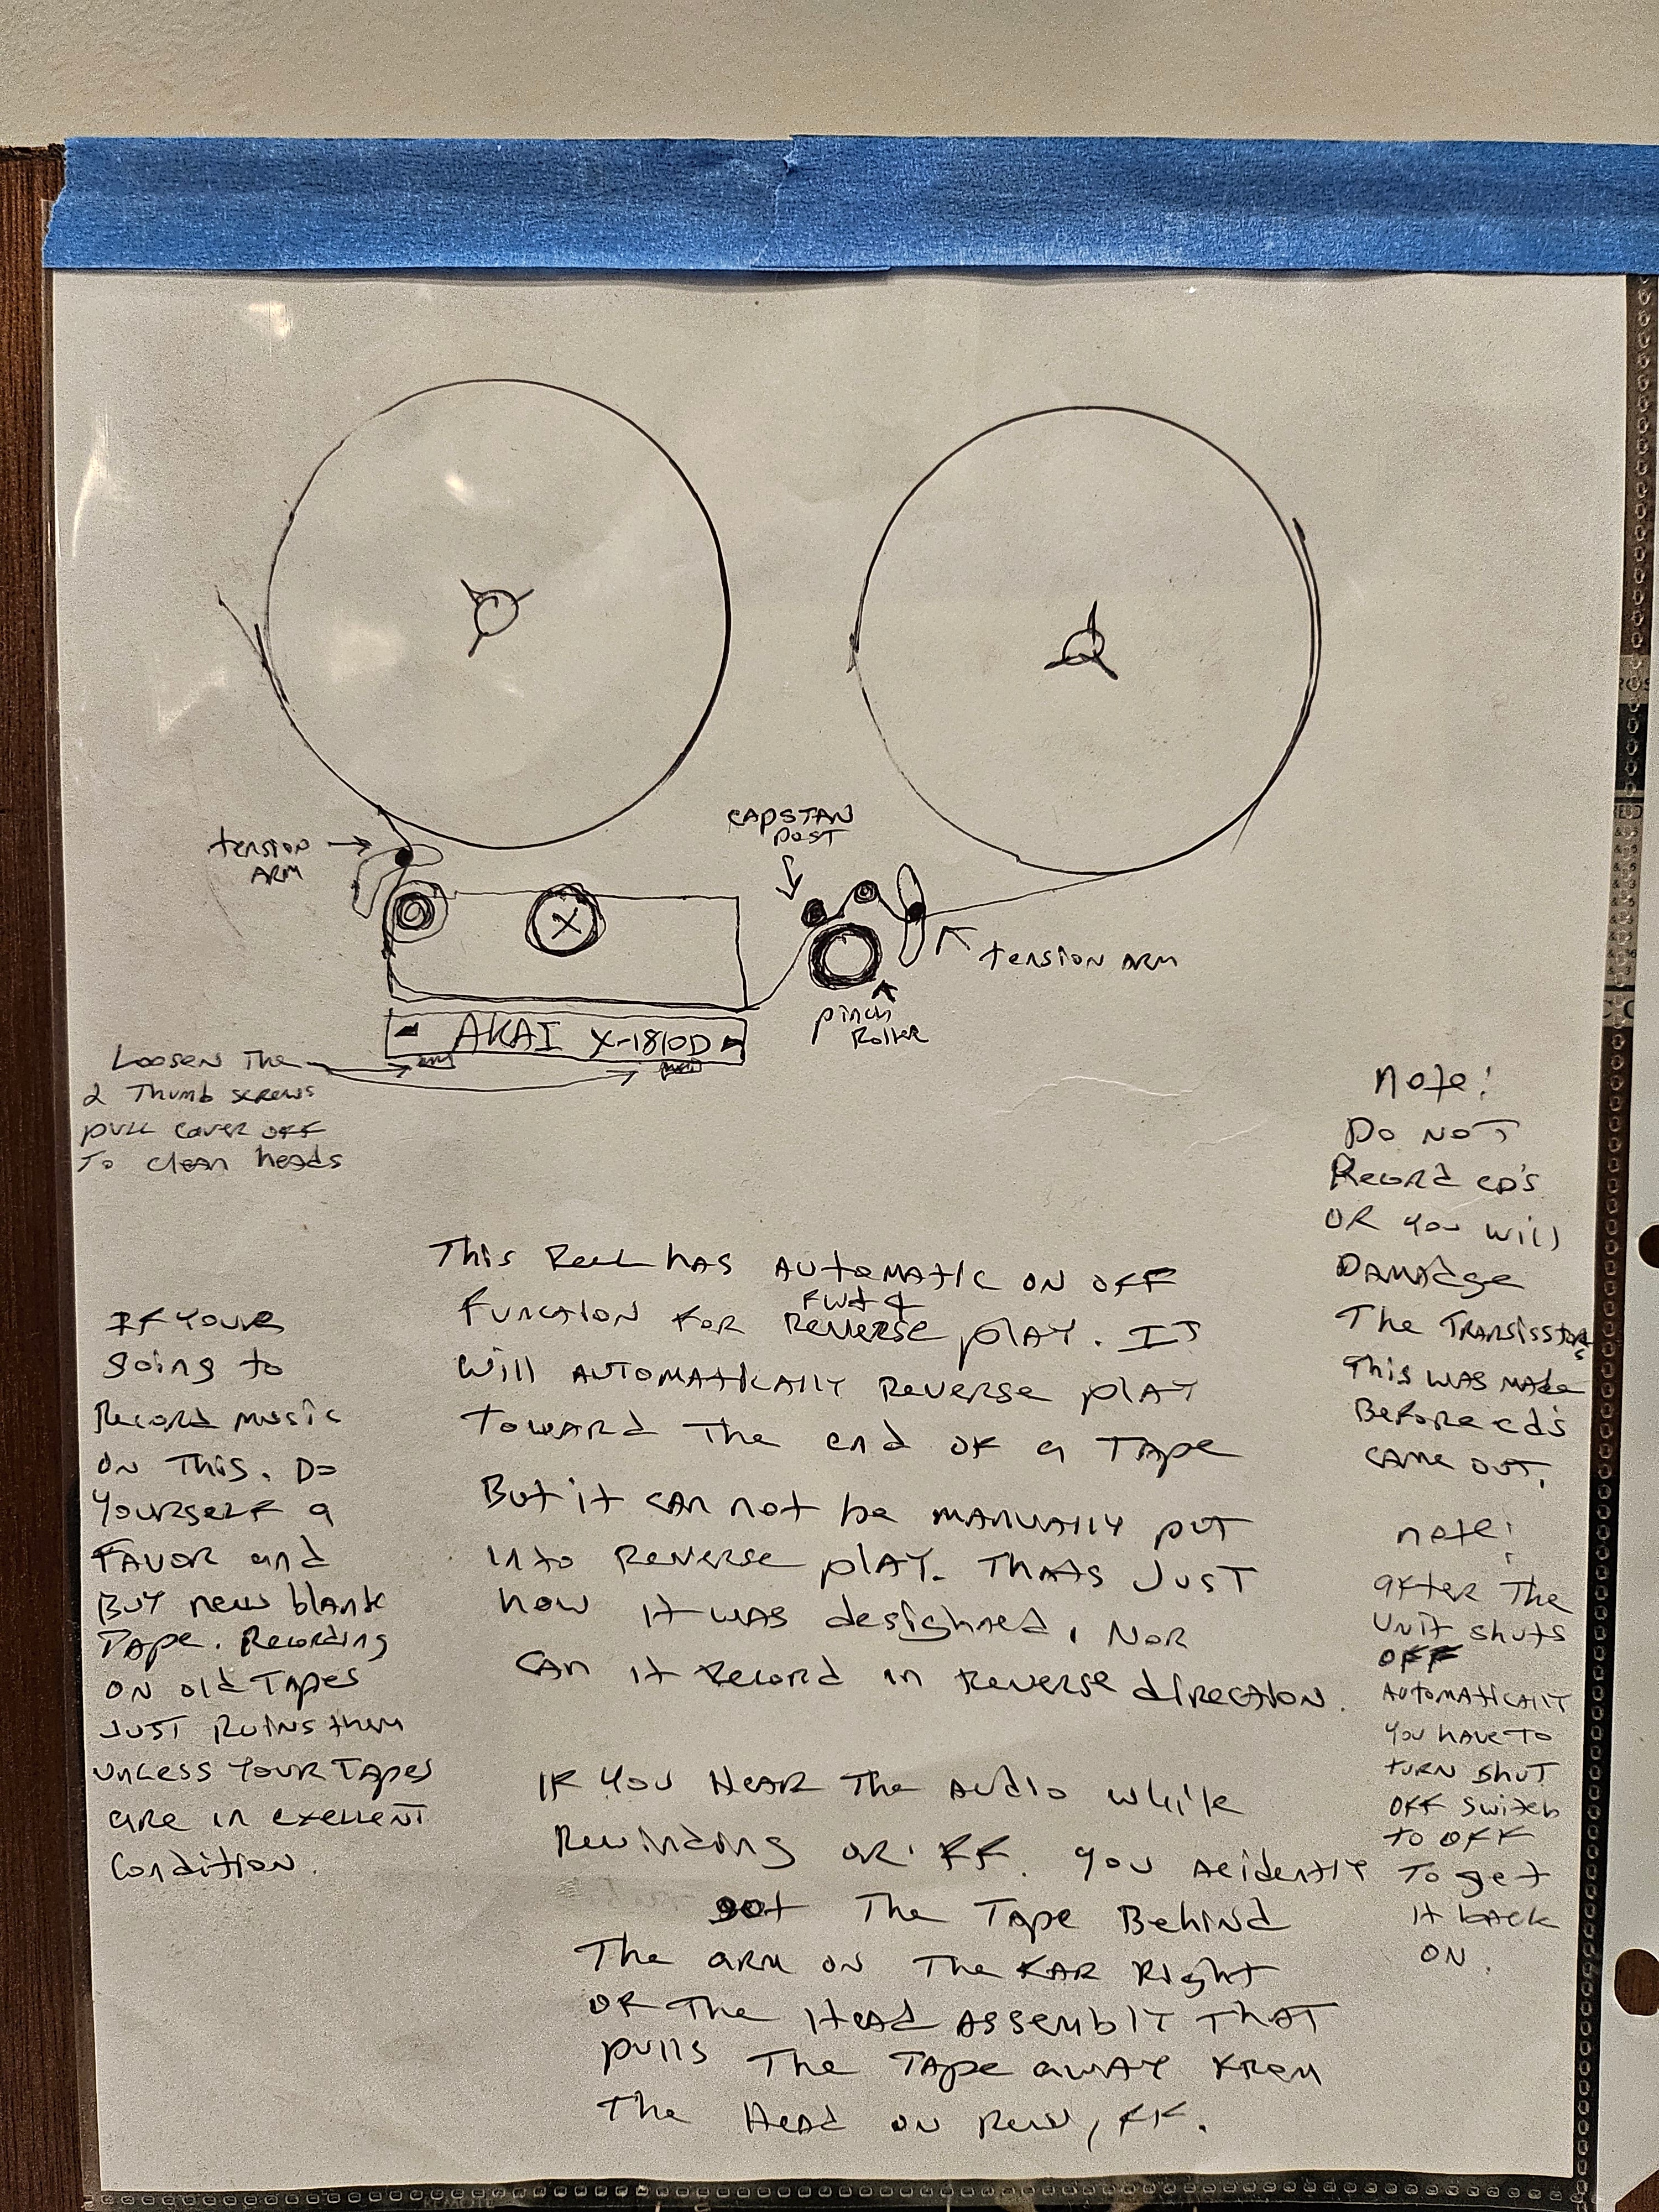 CAPSTAN
POST
tension
ARM
tension ARM
pinch
Roller
AKAI X-1810D
Loosen The
2 Thumb screws
pull cover off
To clean heads
Note!
Do NOT
Record CD's
OR you will
Damadge
The Transisstors
This was made
Before cd's
came out.
This Reel has Automatic on off
Fwd &
Function for Reverse play. It
will automatically reverse play
Toward The end of a Tape
But it can not be manually put
into Reverse play. Thats Just
how it was desighned, Nor
Can it Record in Reverse direction.
If Your
going to
Record music
on This. Do
Yourself a
Favor and
Buy new blank
Tape. Recording
on old Tapes
Just Ruins them
unless Your Tapes
are in exellent
Condition.
If You Hear The Audio while
Rewinding or FF. You acidently
got The Tape Behind
The arm on The Far Right
of The Head Assembly That
pulls The Tape away From
The Head on Rew, FF.
note!
after The
Unit shuts
OFF
Automatically
you have to
turn shut
off switch
to off
To get
it back
ON.